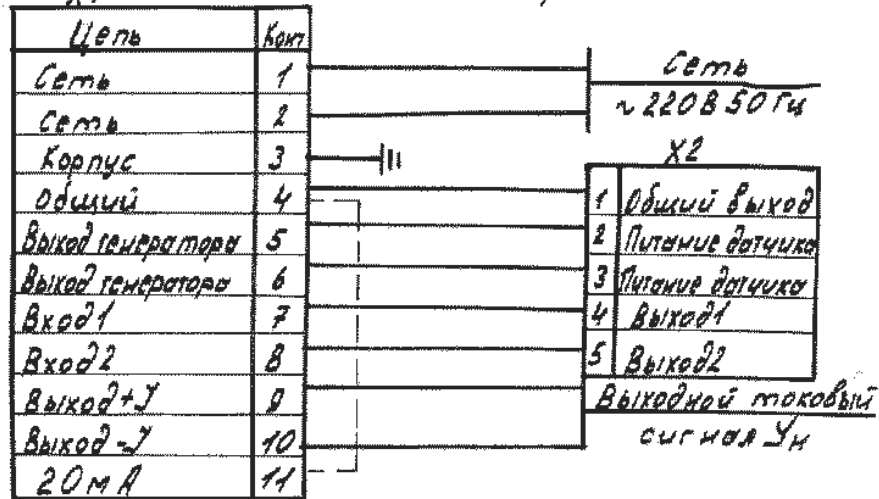 Цепь Конт
Сеть 1
Сеть 2
Корпус 3
Общий 4
Выход генератора 5
Выход генератора 6
Вход 1 7
Вход 2 8
Выход+J 9
Выход-J 10
20мА 11
Сеть
~220В 50 Гц
X2
1 Общий выход
2 Питание датчика
3 Питание датчика
4 Выход1
5 Выход2
Выходной токовый
сигнал Jн